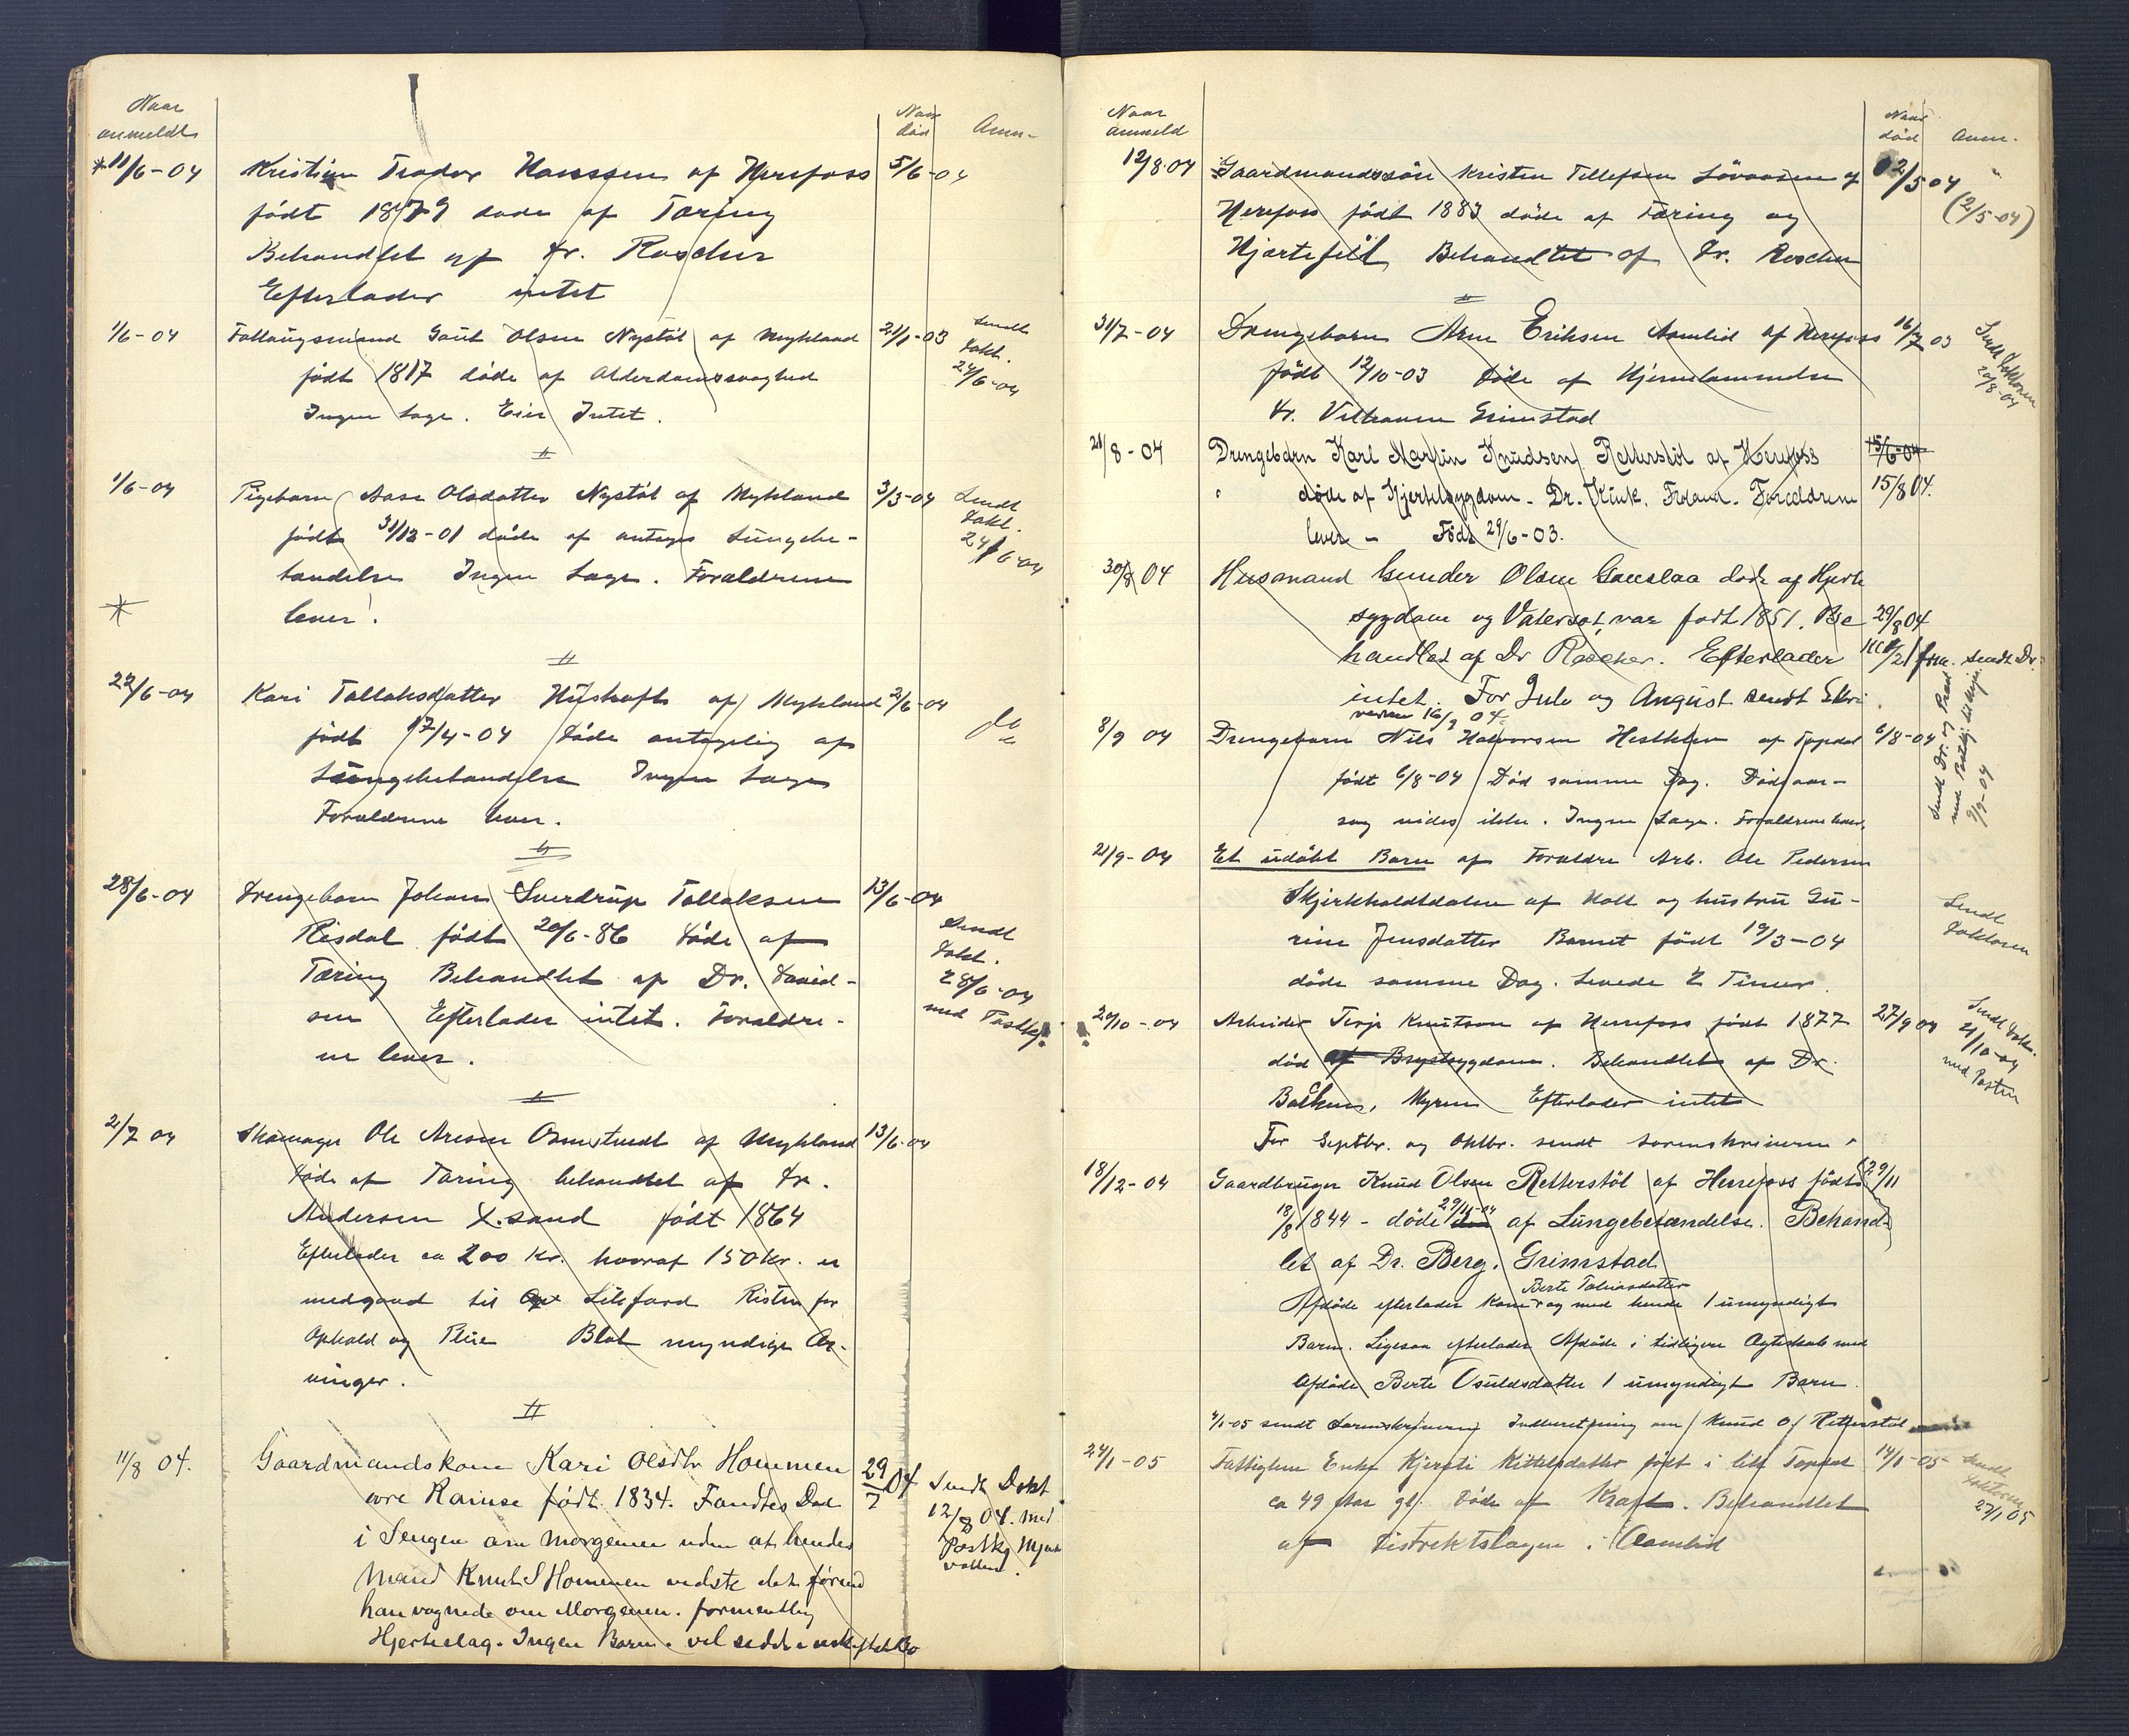 Naar
anmeldt
Naar
död
Anm.
11/6-04 Kristian Teodor Hanssen af Herefoss 5/6-04
født 1879 døde af Tæring
Behandlet af Dr. Roscher
Efterlader intet
1/6-04 Follaugsmand Gaut Olsen Nystøl af Mykland 21/1-03 Sendt
Dokt.
24/6-04
født 1817 døde af Alderdomssvaghed
Ingen Læge. Eier Intet.
1/6-04 Pigebarn Aase Olsdatter Nystøl af Mykland 3/3-04 Sendt
Dokt.
24/6-04
født 31/12-01 døde af antages Lungebe-
tændelse Ingen Læge. Forældrene
lever!
22/6-04 Kari Tallaksdatter af Mykland 2/6-04 do
født 17/4-04 døde antagelig af
Lungebetændelse Ingen Læge
Forældrene lever.
28/6-04 Drengebarn Johan Sverdrup Tallaksen 13/6-04
Risdal født 20/6-86 døde af
Tæring Behandlet af Dr. David-
sen Efterlader intet. Forældre-
ne lever.
Sendt
Dokt.
28/6-04
med Postkg.
2/7 04 Skomager Ole Aresen af Mykland 13/6-04
døde af Tæring behandlet af Dr.
Andersen X.sand født 1864
Efterlader ca 200 Kr. hvoraf 150 Kr. er
medgaaed til Ligfærd Kisten for
Ophold og Pleie Blot myndige Ar-
vinger.
11/8 04. Gaardmandskone Kari Olsdtr Hommen 29/7 04 Sendt Dokt
12/8 04. med
Postkg
øvre Ramse født 1834. Fandtes Død
i Sengen om morgenen uden at hendes
Mand Knut S Hommen vidste det førend
han vognede om Morgenen. formentlig
Hjerteslag. Ingen Børn.
Naar
anmeld
Naar
død
Anm.
12/8.04 Gaardmandssøn Kristen Tellefsen af 2/5 04
(2/5-04)
Herefoss født 1883 døde af Tæring og
Hjertefeil Behandlet af Dr. Roscher
31/7-04 Drengebarn Arne Eriksen Aamlid af Herefoss 16/7 03 Sendt Doktoren
20/8-04
født 12/10-03 døde af Hjernebetændelse
Dr. Grimstad
21/8-04 Drengebarn Karl Martin Knudsen Retterstøl af Herefoss 15/6-04
døde af Hjertesygdom. Dr. Kink, Froland. Forældrene 15/8 04.
lever - Født 29/6-03.
30/8 04 Husmand Gunder Olsen Gauslaa døde af Hjerte
sygdom og Vatersot, var født 1851. Be 29/8 04
handlet af Dr Roscher. Efterlader
intet. For Jule og August sendt Skri
veren 16/9 04
8/9 04 Drengebarn Nils Halvorsen af Topdal 6/8-04
født 6/8-04 Død samme Dag. Dødsaar-
sag vides ikke. Ingen Læge. Forældrene lever,
Sendt Dr. og Præst
med Postkg.
9/9-04
21/9-04 Et udøbt Barn af Forældre Arb. Ole Pedersen
Skjerkholdtdalen af Holt og hustru Gu-
rine Jensdatter Barnet født 19/3-04
døde samme Dag. Levede 2 Timer.
Sendt
Doktoren
20/10-04 Arbeider Terje Knutson af Herefoss født 1877 27/9 04 Sendt Dok.
21/10-04
med Posten
død af Brystsygdom. Behandlet af Dr.
Myren Efterlader intet
For Septbr. og Oktbr. sendt Sorenskriveren
18/12-04 Gaardbruger Knud Olsen Retterstøl af Herrefoss født 29/11
18/8 1844 - døde 29/11-04 af Lungebetændelse. Behand-
let af Dr. Berg, Grimstad
Afdøde efterlader Kone Berte Tobiasdatter og med hende 1 umyndigt
Barn. Ligesaa efterlader Afdøde i tidligere Ægteskab med
afdøde Berte Osuldsdatter 1 umyndigt Barn.
4/1-05 sendt Sorenskriveren Indberetning om Knud O. Retterstøl
24/1-05 Fattiglem Enke Kjersti Kittelsdatter født i lille Topdal 14/1-05 Sendt
Doktoren
27/1 05
ca 49 Aar gl. døde af Kræft. Behandlet
af Distriktslægen i Aamlid